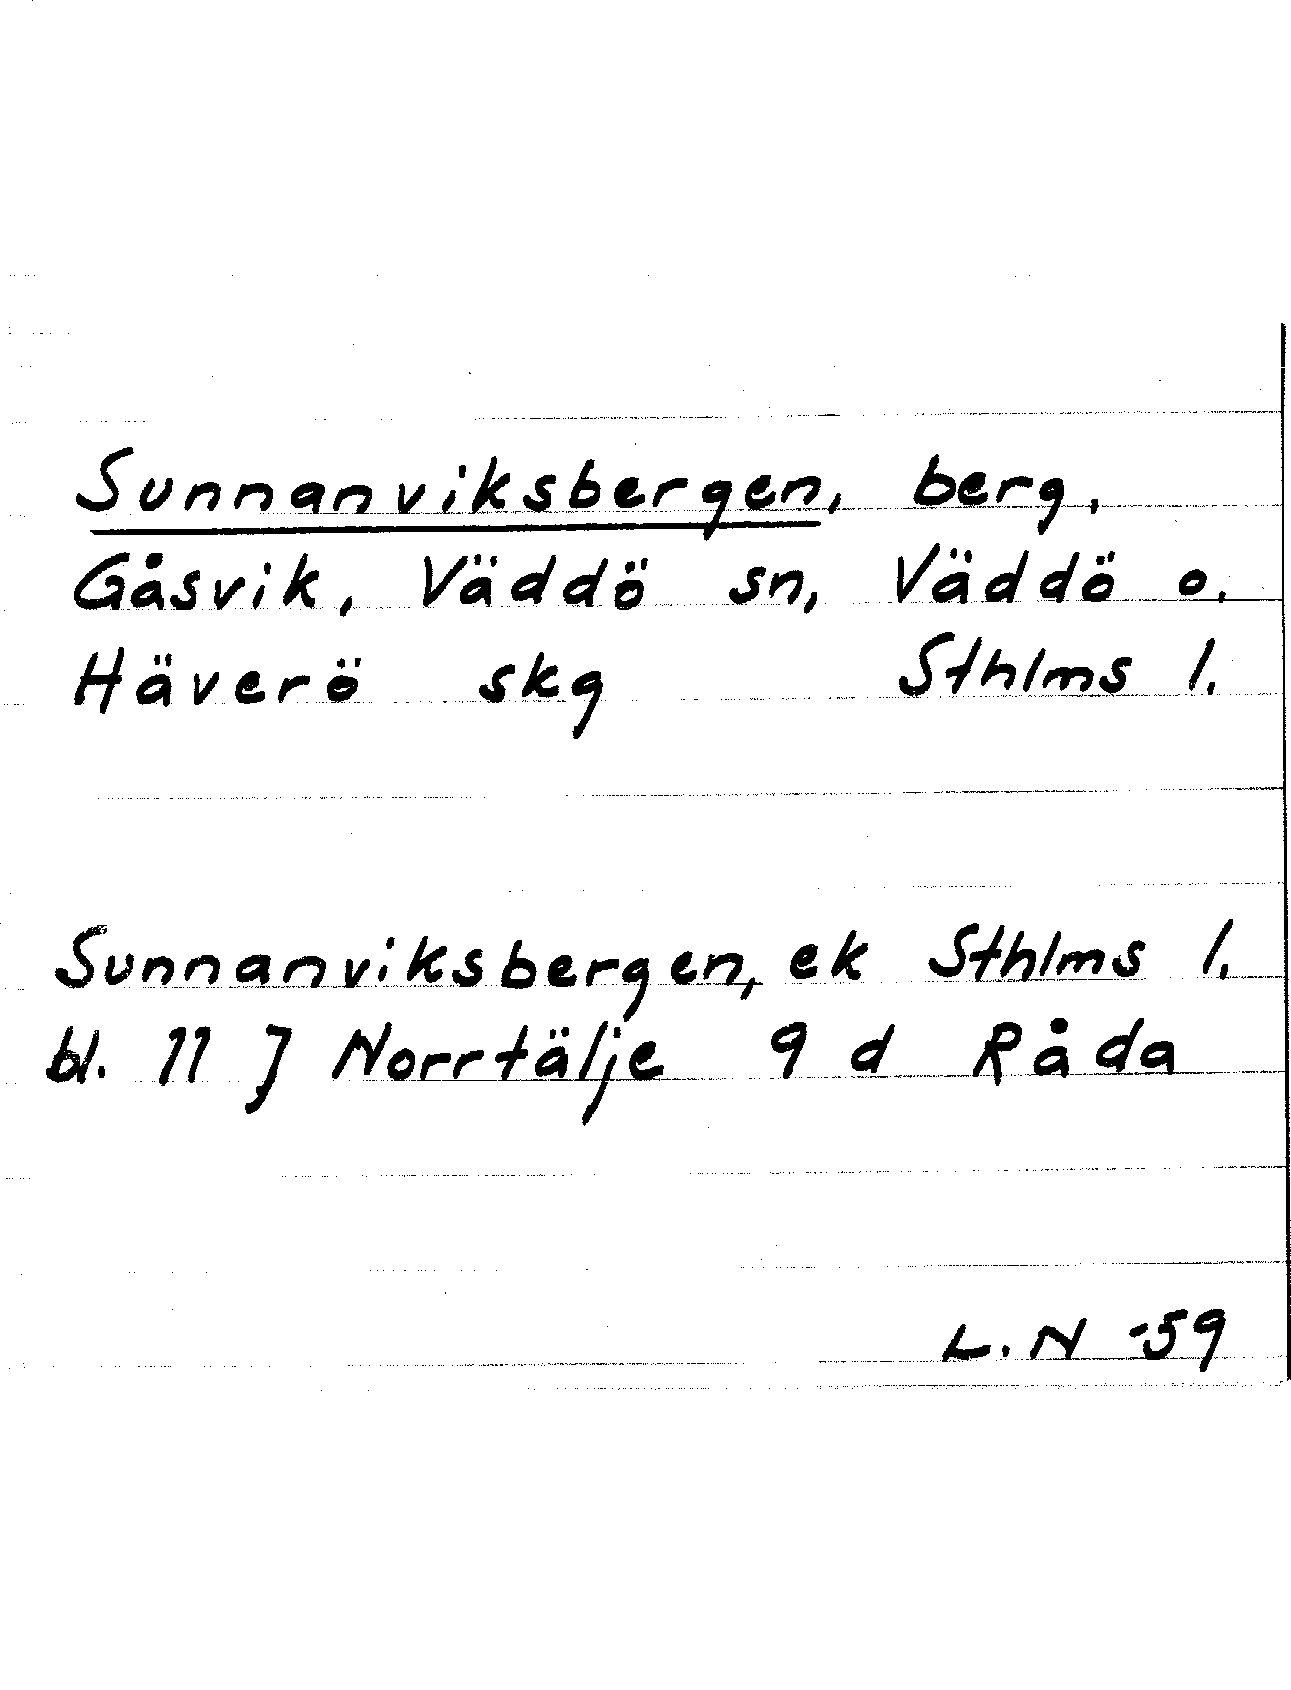 Sunnanviksbergen, berg,
Gåsvik, Väddö sn, Väddö o.
Häverö skg Sthlms l.
Sunnanviksbergen, ek Sthlms l.
bl. 11 J Norrtälje 9 d Råda
L. N -59